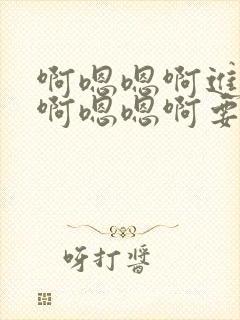 啊嗯嗯啊进
啊嗯嗯啊要
呀打酱